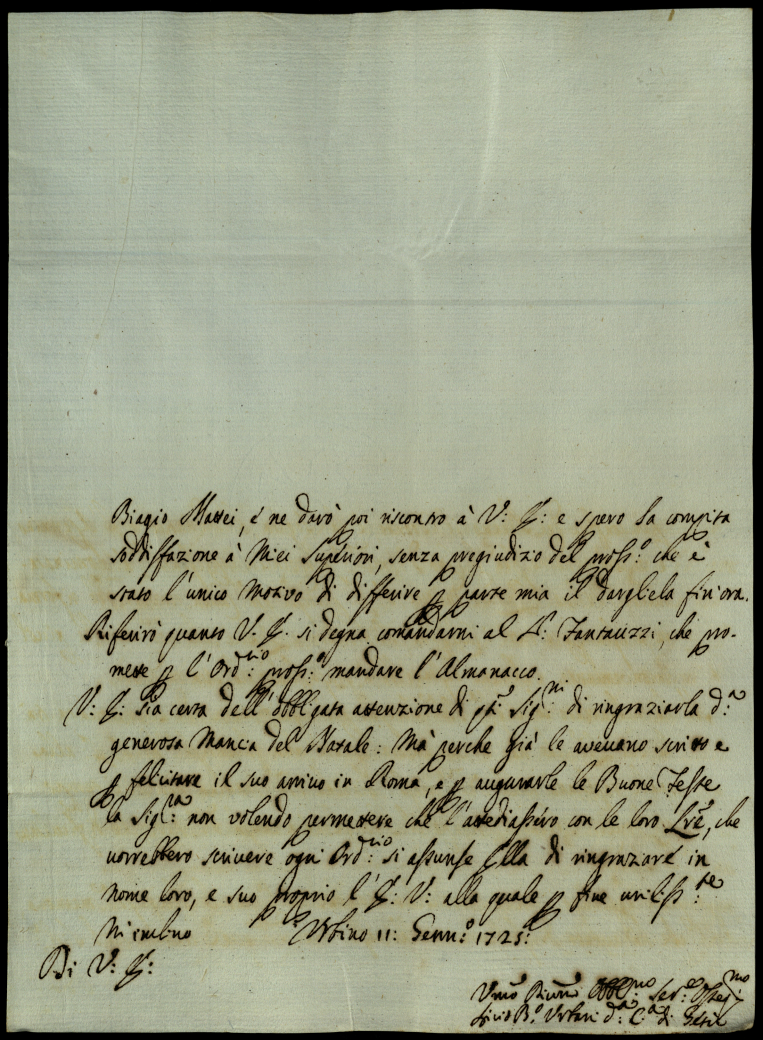 Biagio Mattei, é ne darò poi riscontro à V: E: e spero la compita
soddisfazione à Miei Superiori, senza pregiudizio del pross:o che è
stato l'unico motivo di differire p parte mia il dargliela fin'ora.
Riferirò quanto V. E. si degna comandarmi al P: Fantauzzi, che pro-
mette p l'Ord:rio pross:o mandare l'Almanacco.
V: E: sia certa dell'obbligata attenzione di Sig:ni di ringraziarla d:a
generosa Mancia del Natale: Mà perche già le avevano scritto e
p felicitare il suo arrivo in Roma, e p augurarle le Buone Feste
la Sig:ra non volendo permettere che l'attediassero con le loro Lre, che
vorrebbero scrivere ogni Ord:rio si assunse Ella di ringraziare in
nome loro, e suo proprio l'E: V: alla quale p fine umiliss:te
M'inchino Urbino 11: Genn:o 1725:
Di V: E:
Vmo Obbl:mo Ser:e